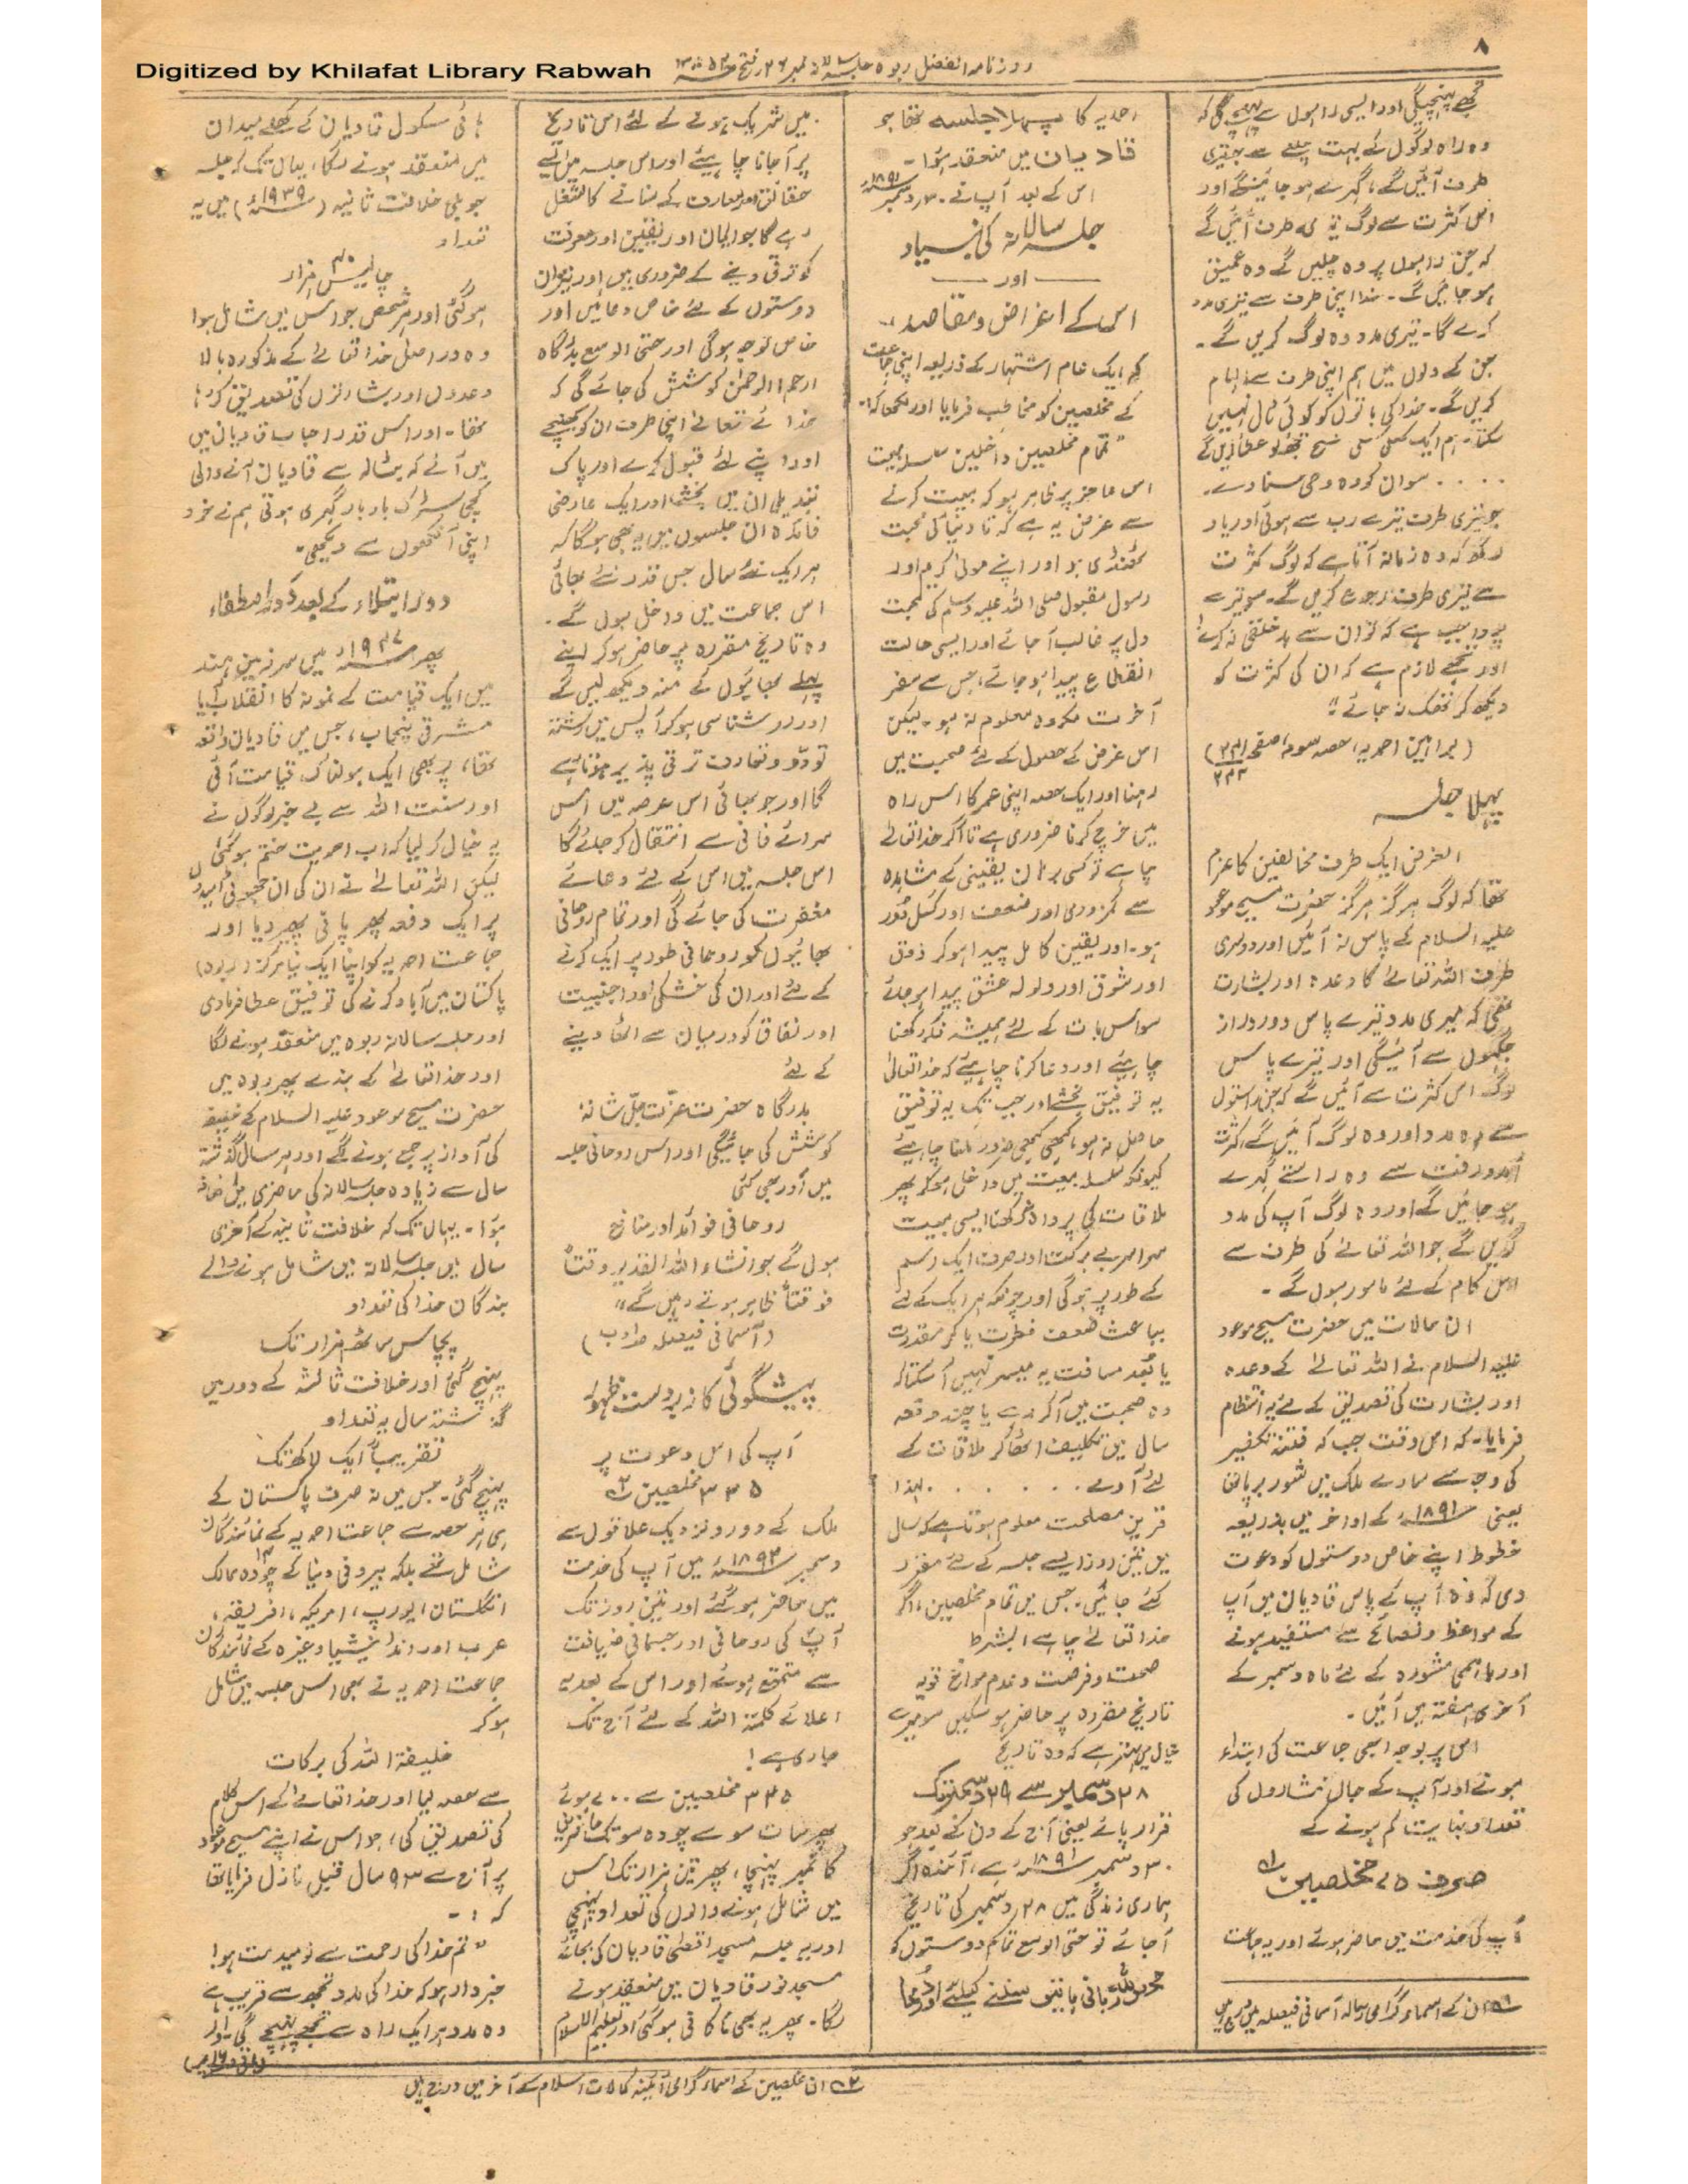 ۸
روزنامہ الفضل ربوہ جلسہ سالانہ نمبر ۲۶ فتح
Digitized by Khilafat Library Rabwah
تجھے پہنچیگی اور ایسی راہوں سے پہنچے گی کہ
وہ راہ لوگوں کے بہت چلنے سے جو تیری
طرف آئیں گے، گہرے ہو جائینگے اور
اس کثرت سے لوگ تیری طرف آئیں گے
کہ جن راہوں پر وہ چلیں گے وہ عمیق
ہو جائیں گے۔ خدا اپنی طرف سے تیری مدد
کرے گا۔ تیری مدد وہ لوگ کریں گے۔
جن کے دلوں میں ہم اپنی طرف سے الہام
کریں گے۔ خدا کی باتوں کو کوئی ٹال نہیں
سکتا۔ ہم ایک کھلی کھلی فتح تجھ کو عطا کریں گے
. . . . سو ان کو وہ وحی سنا دے۔
جو تیری طرف تیرے رب سے ہوئی اور یاد
رکھ کہ وہ زمانہ آتا ہے کہ لوگ کثرت
سے تیری طرف رجوع کریں گے۔ سو تیرے
پر واجب ہے کہ تو ان سے بدخلقی نہ کرے!
اور تجھے لازم ہے کہ ان کی کثرت کو
دیکھ کر تھک نہ جائے"
(براہین احمدیہ، حصہ سوم، صفحہ ۲۴۱
۲۴۲)
پہلا جلسہ
الغرض ایک طرف مخالفین کا عزم
تھا کہ لوگ ہرگز ہرگز حضرت مسیح موعود
علیہ السلام کے پاس نہ آئیں اور دوسری
طرف اللہ تعالےٰ کا وعدہ اور بشارت
تھی کہ میری مدد تیرے پاس دور دراز
جگہوں سے آئیگی اور تیرے پاس
لوگ اس کثرت سے آئیں گے کہ جن راستوں
سے وہ مدد اور وہ لوگ آئیں گے، کثرت
آمد و رفت سے وہ راستے گہرے
ہو جائیں گے اور وہ لوگ آپ کی مدد
کریں گے جو اللہ تعالےٰ کی طرف سے
اس کام کے لئے مامور ہوں گے۔
ان حالات میں حضرت مسیح موعود
علیہ السلام نے اللہ تعالےٰ کے وعدہ
اور بشارت کی تصدیق کے لئے یہ انتظام
فرمایا۔ کہ اس وقت جب کہ فتنہ تکفیر
کی وجہ سے سارے ملک میں شور برپا تھا
یعنی ۱۸۹۱ء کے اواخر میں بذریعہ
خطوط اپنے خاص دوستوں کو دعوت
دی کہ وہ آپ کے پاس قادیان میں آپ
کے مواعظ و نصائح سے مستفید ہونے
اور باہمی مشورہ کے لئے ماہ دسمبر کے
آخری ہفتہ میں آئیں۔
اس پر بوجہ ابھی جماعت کی ابتداء
ہونے اور آپ کے جاں نثاروں کی
تعداد نہایت کم ہونے کے
صرف ۷۵ مخلصین ؂۱
آپ کی خدمت میں حاضر ہوئے اور یہ جماعت
؂۱ ان کے اسماء گرامی رسالہ آسمانی فیصلہ میں درج ہیں
احمدیہ کا پہلا جلسہ تھا جو
قادیان میں منعقد ہوا۔
اس کے بعد آپ نے ۳۰ دسمبر ۱۸۹۱ء
جلسہ سالانہ کی بنیاد
—— اور ——
اس کے اغراض و مقاصد
کو ایک عام اشتہار کے ذریعہ اپنی جماعت
کے مخلصین کو مخاطب فرمایا اور لکھا کہ:۔
"تمام مخلصین داخلین سلسلہ بیعت
اس عاجز پر ظاہر ہو کہ بیعت کرنے
سے غرض یہ ہے کہ تا دنیا کی محبت
ٹھنڈی ہو اور اپنے مولیٰ کریم اور
رسول مقبول صلی اللہ علیہ وسلم کی محبت
دل پر غالب آ جائے اور ایسی حالت
انقطاع پیدا ہو جائے، جس سے سفر
آخرت مکروہ معلوم نہ ہو۔ لیکن
اس غرض کے حصول کے لئے صحبت میں
رہنا اور ایک حصہ اپنی عمر کا اس راہ
میں خرچ کرنا ضروری ہے تا اگر خدا تعالےٰ
چاہے تو کسی برہان یقینی کے مشاہدہ
سے کمزوری اور ضعف اور کسل دُور
ہو۔ اور یقین کامل پیدا ہو کر ذوق
اور شوق اور ولولہ عشق پیدا ہو جائے
سو اس بات کے لئے ہمیشہ فکر رکھنا
چاہیئے اور دعا کرنا چاہیئے کہ خدا تعالیٰ
یہ توفیق بخشے اور جب تک یہ توفیق
حاصل نہ ہو، کبھی کبھی ضرور ملنا چاہیئے
کیونکہ سلسلہ بیعت میں داخل ہو کر پھر
ملاقات کی پروا نہ رکھنا ایسی بیعت
سراسر بے برکت اور صرف ایک رسم
کے طور پر ہو گی اور چونکہ ہر ایک کے لئے
بباعث ضعف فطرت یا کمی مقدرت
یا بُعد مسافت یہ میسر نہیں آ سکتا کہ
وہ صحبت میں آ کر رہے یا چند دفعہ
سال میں تکلیف اٹھا کر ملاقات کے
لئے آوے . . . . . . لہذا
قرین مصلحت معلوم ہوتا ہے کہ سال
میں تین روز ایسے جلسہ کے لئے مقرر
کئے جائیں۔ جس میں تمام مخلصین، اگر
خدا تعالےٰ چاہے بشرط
صحت و فرصت و عدم موانع قویہ
تاریخ مقررہ پر حاضر ہو سکیں سو میرے
خیال میں بہتر ہے کہ وہ تاریخ
۲۸ دسمبر سے ۲۹ دسمبر تک
قرار پائے یعنی آج کے دن کے بعد جو
۳۰ دسمبر ۱۸۹۱ء ہے، آئندہ اگر
ہماری زندگی میں ۲۸ دسمبر کی تاریخ
آ جائے تو حتی الوسع تمام دوستوں کو
محض للہ ربانی باتیں سننے کیلئے اور دعا
میں شریک ہونے کے لئے اس تاریخ
پر آ جانا چاہیئے اور اس جلسہ میں ایسے
حقائق اور معارف کے سنانے کا شغل
رہے گا جو ایمان اور یقین اور معرفت
کو ترقی دینے کے ضروری ہیں اور نیز ان
دوستوں کے لئے خاص دعائیں اور
خاص توجہ ہو گی اور حتی الوسع بدرگاہ
ارحم الراحمین کوشش کی جائے گی کہ
خدائے تعالےٰ اپنی طرف ان کو کھینچے
اور اپنے لئے قبول کرے اور پاک
تبدیلی ان میں بخشے اور ایک عارضی
فائدہ ان جلسوں میں یہ بھی ہو گا کہ
ہر ایک نئے سال جس قدر نئے بھائی
اس جماعت میں داخل ہوں گے۔
وہ تاریخ مقررہ پر حاضر ہو کر اپنے
پہلے بھائیوں کے منہ دیکھ لیں گے
اور روشناسی ہو کر آپس میں رشتہ
تودّد و تعارف ترقی پذیر ہوتا رہے
گا اور جو بھائی اس عرصہ میں اس
سرائے فانی سے انتقال کر جائے گا
اس جلسہ میں اس کے لئے دعائے
مغفرت کی جائے گی اور تمام روحانی
بھائیوں کو روحانی طور پر ایک کرنے
کے لئے اور ان کی خشکی اور اجنبیت
اور نفاق کو درمیان سے اٹھا دینے
کے لئے
بدرگاہ حضرت عزّت جلّ شانہٗ
کوشش کی جائیگی اور اس روحانی جلسہ
میں اور بھی کئی
روحانی فوائد اور منافع
ہوں گے جو انشاء اللہ القدیر وقتاً
فوقتاً ظاہر ہوتے رہیں گے"
(آسمانی فیصلہ)
پیشگوئی کا زبردست ظہور
آپ کی اس دعوت پر
۳۲۵ مخلصین ؂۲
ملک کے دور و نزدیک علاقوں سے
دسمبر ۱۸۹۲ء میں آپ کی خدمت
میں حاضر ہو گئے اور تین روز تک
آپ کی روحانی اور جسمانی ضیافت
سے متمتع ہوئے اور اس کے بعد یہ
اعلائے کلمۃ اللہ کے لئے آج تک
جاری ہے!
۳۲۵ مخلصین سے ۷۰۰ ہوئے
پھر سات سو سے چودہ سو تک حاضرین
کا نمبر پہنچا، پھر تین ہزار تک اس
میں شامل ہونے والوں کی تعداد پہنچی
اور یہ جلسہ مسجد اقصیٰ قادیان کی بجائے
مسجد نور قادیان میں منعقد ہونے
لگا۔ پھر یہ بھی ناکافی ہو گئی اور تعلیم الاسلام
ہائی سکول قادیان کے کھلے میدان
میں منعقد ہونے لگا، یہاں تک کہ جلسہ
جوبلی خلافت ثانیہ (۱۹۳۹ء) میں یہ
تعداد
چالیس ہزار
ہو گئی اور ہر شخص جو اس میں شامل ہوا
وہ دراصل خدا تعالےٰ کے مذکورہ بالا
وعدوں اور بشارتوں کی تصدیق کر رہا
تھا۔ اور اس قدر احباب قادیان میں
میں آئے کہ بٹالہ سے قادیان آنے والی
کچی سڑک بار بار گہری ہوتی ہم نے خود
اپنی آنکھوں سے دیکھی۔
دور ابتلاء کے بعد دور اصطفاء
پھر ۱۹۴۷ء میں سرزمین ہند
میں ایک قیامت کے نمونہ کا انقلاب آیا
مشرقی پنجاب، جس میں قادیان واقعہ
تھا، پر بھی ایک ہولناک قیامت آئی
اور سنت اللہ سے بے خبر لوگوں نے
یہ خیال کر لیا کہ اب احمدیت ختم ہو گئی
لیکن اللہ تعالےٰ نے ان کی ان جھوٹی امیدوں
پر ایک دفعہ پھر پانی پھیر دیا اور
جماعت احمدیہ کو اپنا ایک نیا مرکز (ربوہ)
پاکستان میں آباد کرنے کی توفیق عطا فرما دی
اور جلسہ سالانہ ربوہ میں منعقد ہونے لگا
اور خدا تعالےٰ کے بندے پھر ربوہ میں
حضرت مسیح موعود علیہ السلام کے خلیفہ
کی آواز پر جمع ہونے لگے اور ہر سال گذشتہ
سال سے زیادہ جلسہ سالانہ کی حاضری میں اضافہ
ہوا۔ یہاں تک کہ خلافت ثانیہ کے آخری
سال میں جلسہ سالانہ میں شامل ہونے والے
بندگان خدا کی تعداد
پچاس ساٹھ ہزار تک
پہنچ گئی اور خلافت ثالثہ کے دور میں
گذشتہ سال یہ تعداد
تقریباً ایک لاکھ تک
پہنچ گئی۔ جس میں نہ صرف پاکستان کے
ہی ہر حصہ سے جماعت احمدیہ کے نمائندگان
شامل تھے بلکہ بیرونی دنیا کے چودہ ۱۴ ممالک
انگلستان، یورپ، امریکہ، افریقہ،
عرب اور انڈونیشیا وغیرہ کے نمائندگان
جماعت احمدیہ نے بھی اس جلسہ میں شامل
ہو کر
خلیفۃ اللہ کی برکات
سے حصہ لیا اور خدا تعالےٰ کے اس کلام
کی تصدیق کی، جو اس نے اپنے مسیح موعود
پر آج سے ۹۳ سال قبل نازل فرمایا تھا
کہ:۔
"تم خدا کی رحمت سے نومید مت ہو!
خبردار ہو کہ خدا کی مدد تجھ سے قریب ہے
وہ مدد ہر ایک راہ سے تجھے پہنچے گی اور
؂۲ ان مخلصین کے اسماء گرامی آئینہ کمالات اسلام کے آخر میں درج ہیں